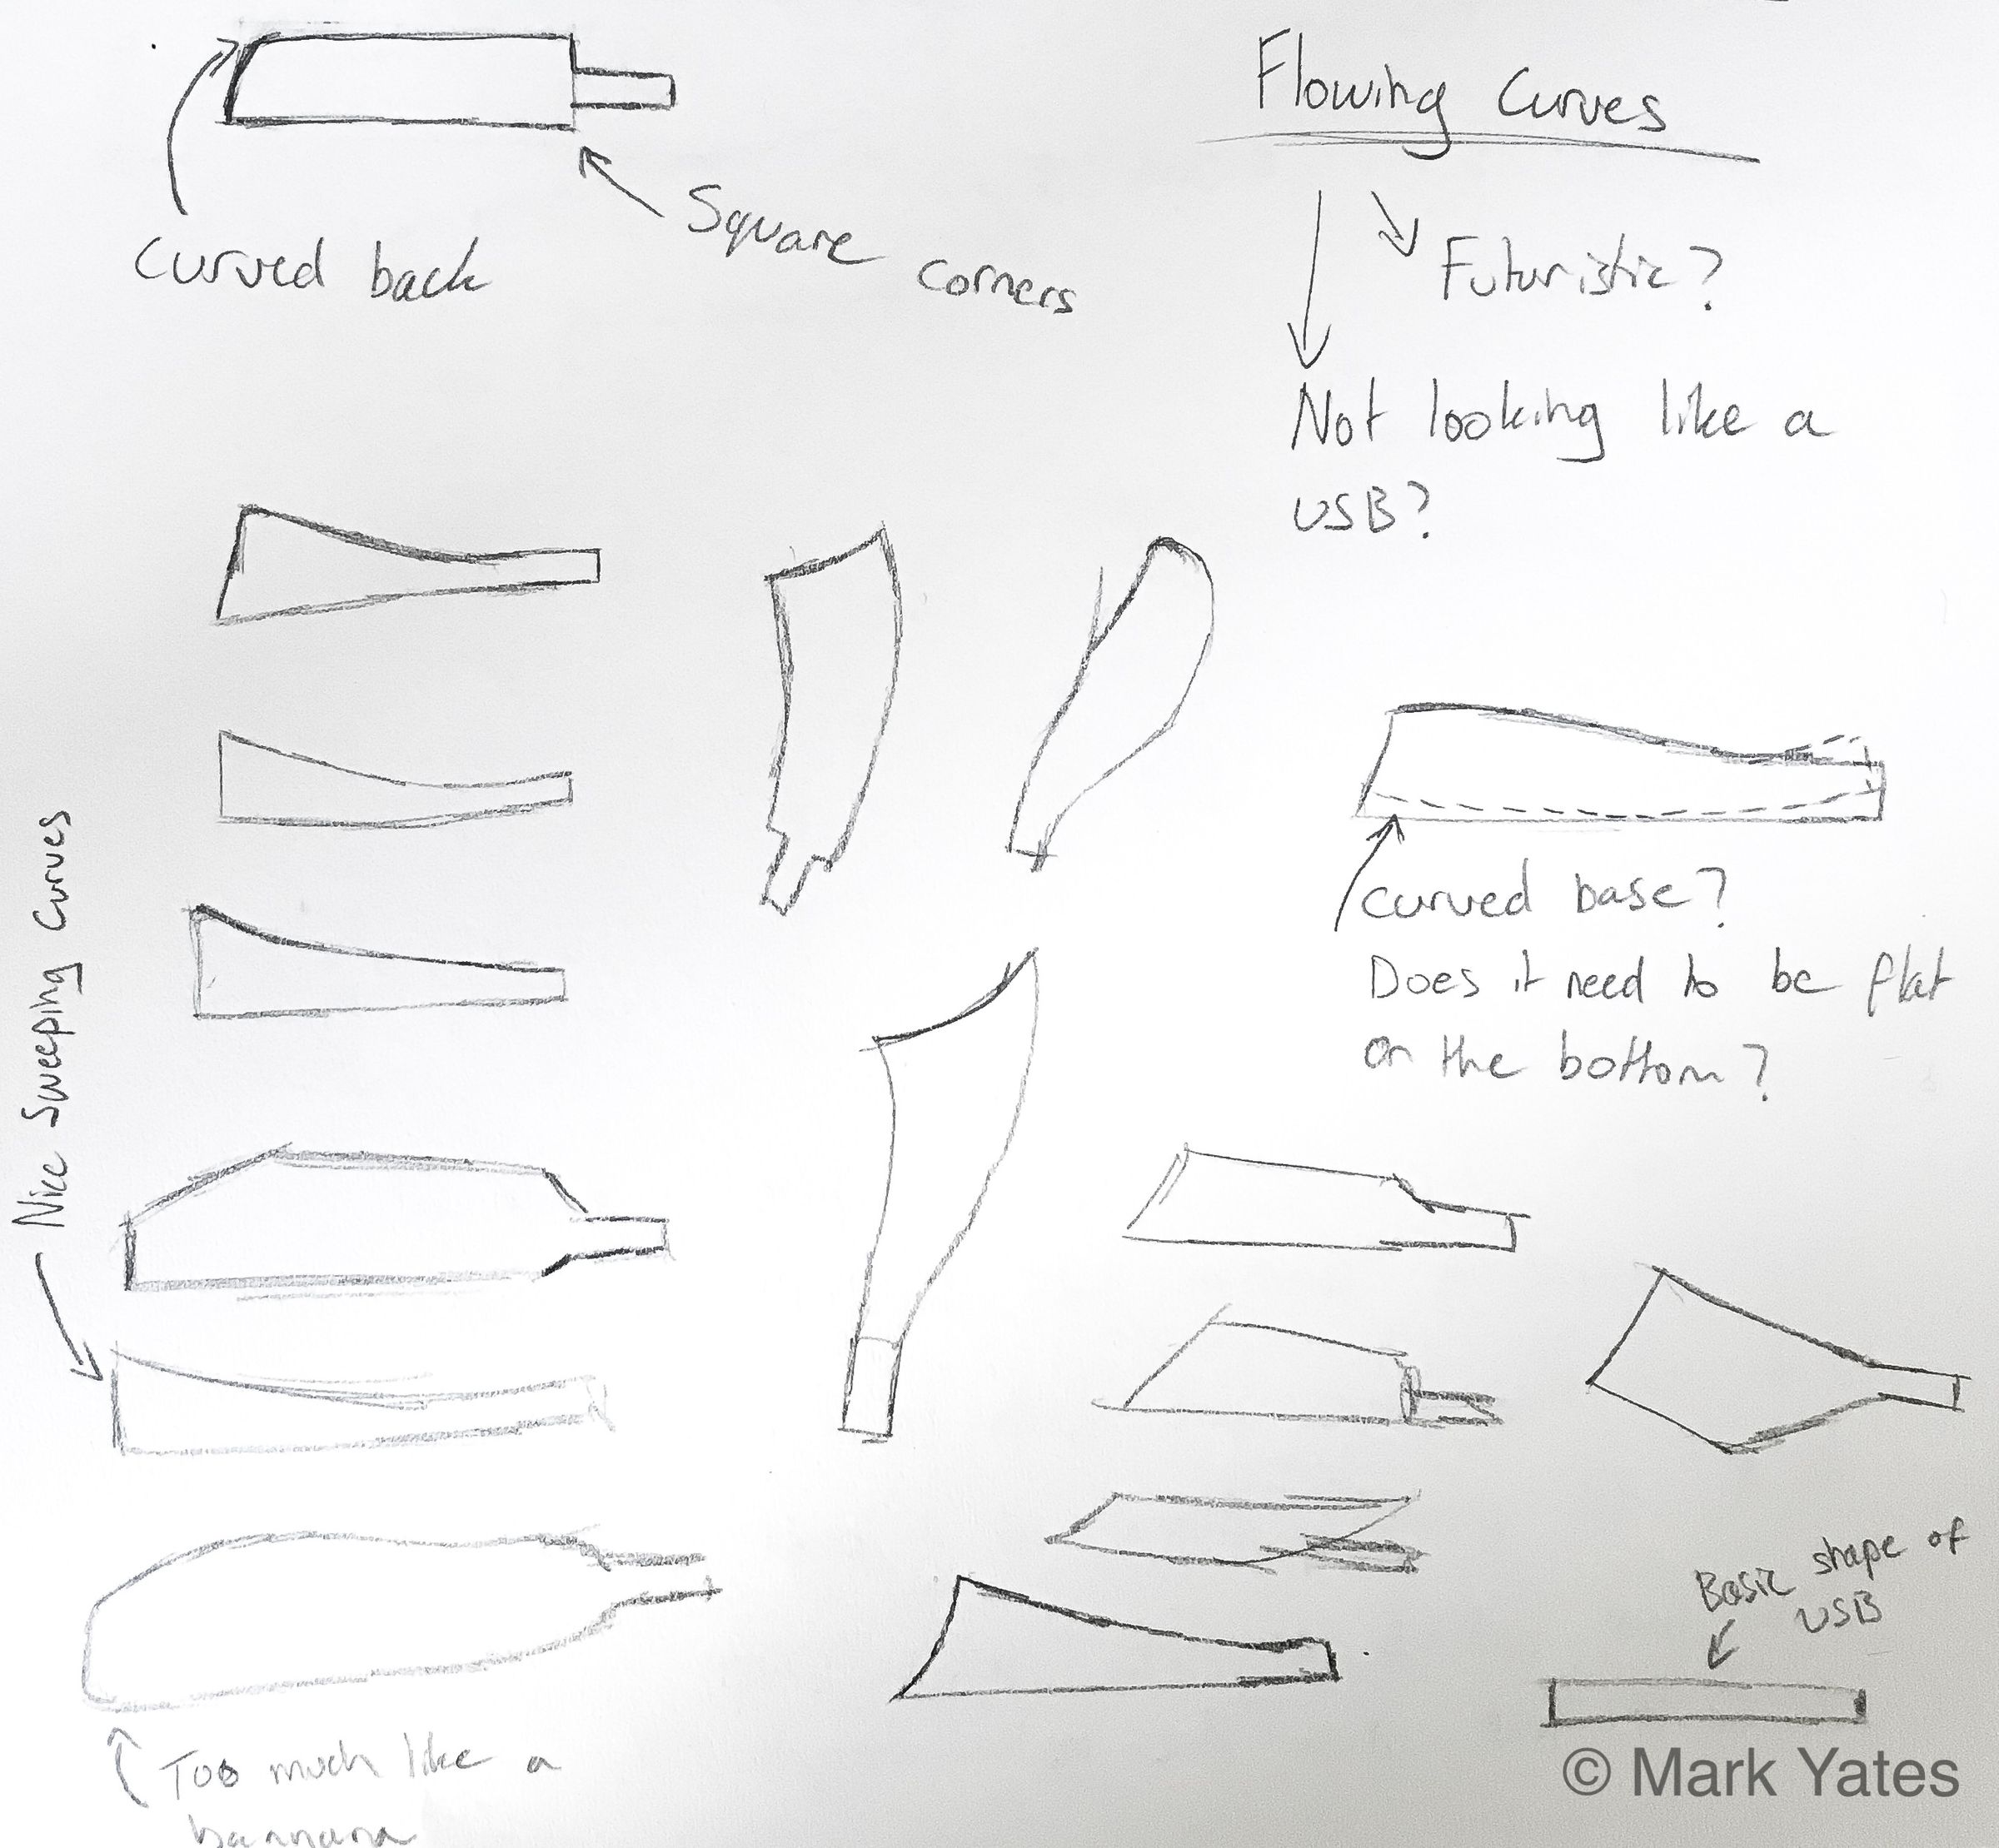 Flowing Curves
Curved back
Square corners
Futuristic?
Not looking like a
USB?
Nice Sweeping Curves
curved base?
Does it need to be flat
on the bottom?
Basic shape of
USB
Too much like a
bannana
© Mark Yates